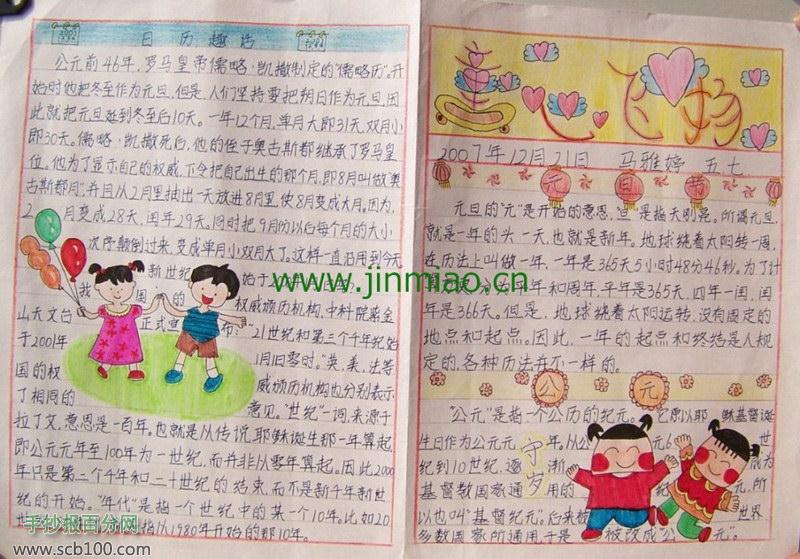 日历趣话
公元前46年,罗马皇帝儒略·凯撒制定的"儒略历"。开
始时他把冬至作为元旦,但是,人们坚持要把朔日作为元旦,因
此就把元旦延到冬至后10天。一年12个月,单月大即31天,双月小
即30天。儒略·凯撒死后,他的侄子奥古斯都继承了罗马皇
位。他为了显示自己的权威,下令把自己出生的那个月,即8月叫做"奥
古斯都月",并且从2月里抽出一天放进8月里,使8月变成大月。因为,
2月变成28天,闰年29天。同时把9月份以后每个月的大小
次序颠倒过来,变成单月小双月大了。这样一直沿用到今天
新世纪始于
我国的权威频历机构,中科院紫金
山天文台正式宣布:"21世纪和第三个千年纪始
于2001年1月1日零时。"英、美、法等
国的权威频历机构也分别表示
了相同的意见。"世纪"一词,来源于
拉丁文,意思是一百年。也就是从传说,耶稣诞生那一年算起,
即公元元年至100年为一世纪,而并非从零年算起。因此2000
年只是第二个千年和二十世纪的结束,而不是新千年新世
纪的开始。"年代"是指一个世纪中的某一个10年。比如20
指从1980年开始的那10年。
心飞扬
2007年12月21日 马雅婷 五七
元旦节
元旦的"元"是开始的意思,旦是指天刚亮。所谓元旦,
就是一年的头一天,也就是新年。地球绕着太阳转一周,
在历法上叫做一年,一年是365天5小时48分46秒。为了计
年和周年,平年是365天,四年一闰,闰
年是366天。但是,地球绕着太阳运转,没有固定的
地点和起点。因此,一年的起点和终结是人规
定的,各种历法并不一样的。
公元
"公元"是指一个公历的纪元。它原以耶稣基督诞
生日作为公元元年。从公元6世
纪到10世纪,逐渐成为
基督教国家通用的纪元,所
以也叫"基督纪元"。后来被世界
多数国家所通用,于是被改成"公元"。
守岁
www.jinmiao.cn
手抄报百分网
www.scb100.com